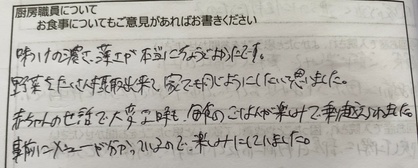 厨房職員について
お食事についてもご意見があればお書きください
味つけの濃さ、薄さが本当にちょうどよかったです。
野菜をたくさん摂取出来て、家でも同じようにしたいと思いました。
赤ちゃんの世話で大変な時も、毎食のごはんが楽しみで乗り越えられました。
事前にメニューが分かっているので、楽しみにしていました。